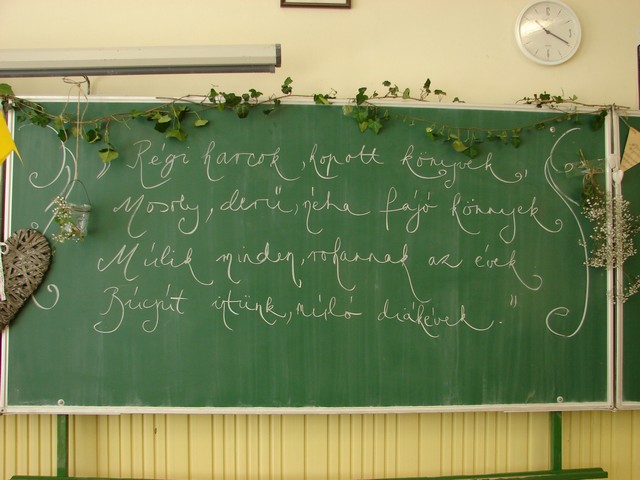 „Régi harcok, kopott könyvek,
Mosoly, derű, néha fájó könnyek
Múlik minden, rohannak az évek
Búcsút intünk, múló diákévek."